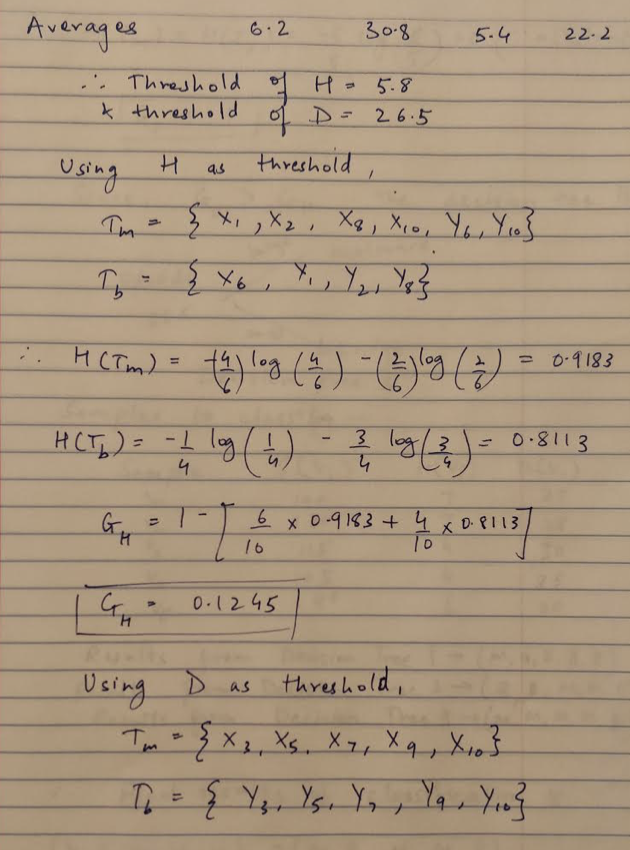 Averages 6.2 30.8 5.4 22.2
∴ Threshold of H = 5.8
& threshold of D = 26.5
Using H as threshold,
Tm = { X1 , X2 , X8, X10, Y6, Y10}
Tb = { X6 , Y1 , Y2, Y8}
∴ H(Tm) = -(4/6) log (4/6) - (2/6) log (2/6) = 0.9183
H(Tb) = -1/4 log (1/4) - 3/4 log (3/4) = 0.8113
GH = 1 - [ 6/10 x 0.9183 + 4/10 x 0.8113 ]
GH = 0.1245
Using D as threshold,
Tm = { X3, X5, X7, X9 , X10}
Tb = { Y3, Y5, Y7 , Y9, Y10}